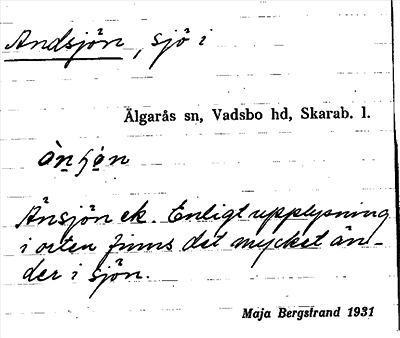 Andsjön, sjö i
Älgarås sn, Vadsbo hd, Skarab. l.
Änsjön ek. Enligt upplysning
i orten finns det mycket än-
der i sjön.
Maja Bergstrand 1931